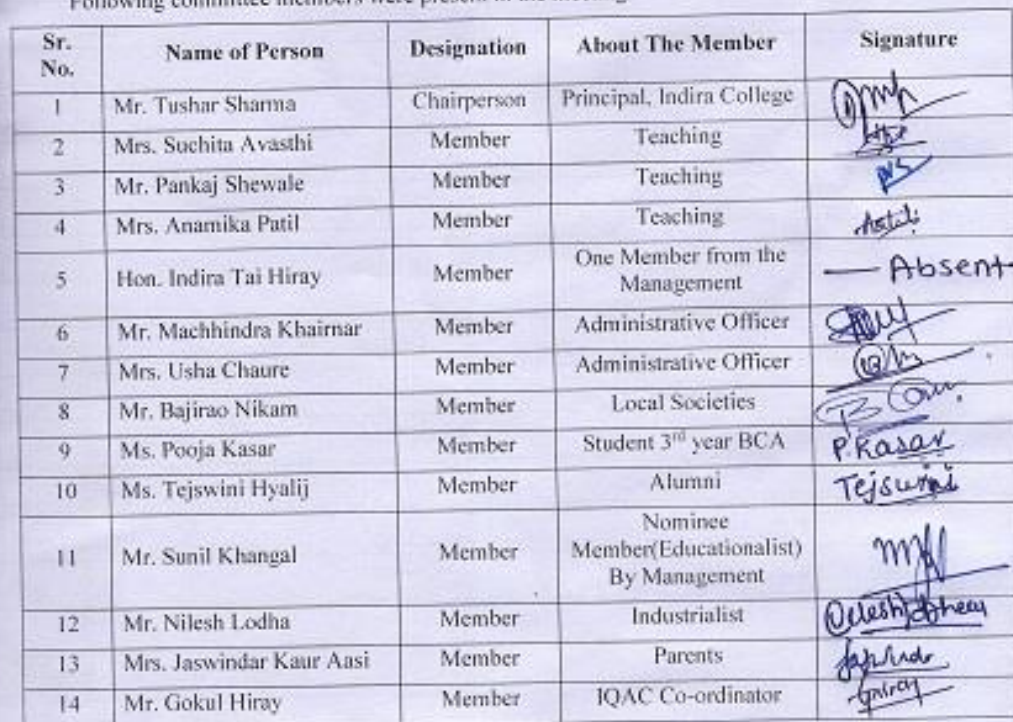 Following committee members were present in the meeting
Sr. No. Name of Person Designation About The Member Signature
1 Mr. Tushar Sharma Chairperson Principal, Indira College
2 Mrs. Suchita Avasthi Member Teaching
3 Mr. Pankaj Shewale Member Teaching
4 Mrs. Anamika Patil Member Teaching
5 Hon. Indira Tai Hiray Member One Member from the Management — Absent
6 Mr. Machhindra Khairnar Member Administrative Officer
7 Mrs. Usha Chaure Member Administrative Officer
8 Mr. Bajirao Nikam Member Local Societies
9 Ms. Pooja Kasar Member Student 3rd year BCA P.Kasar
10 Ms. Tejswini Hyalij Member Alumni Tejswini
11 Mr. Sunil Khangal Member Nominee Member(Educationalist) By Management
12 Mr. Nilesh Lodha Member Industrialist
13 Mrs. Jaswindar Kaur Aasi Member Parents
14 Mr. Gokul Hiray Member IQAC Co-ordinator